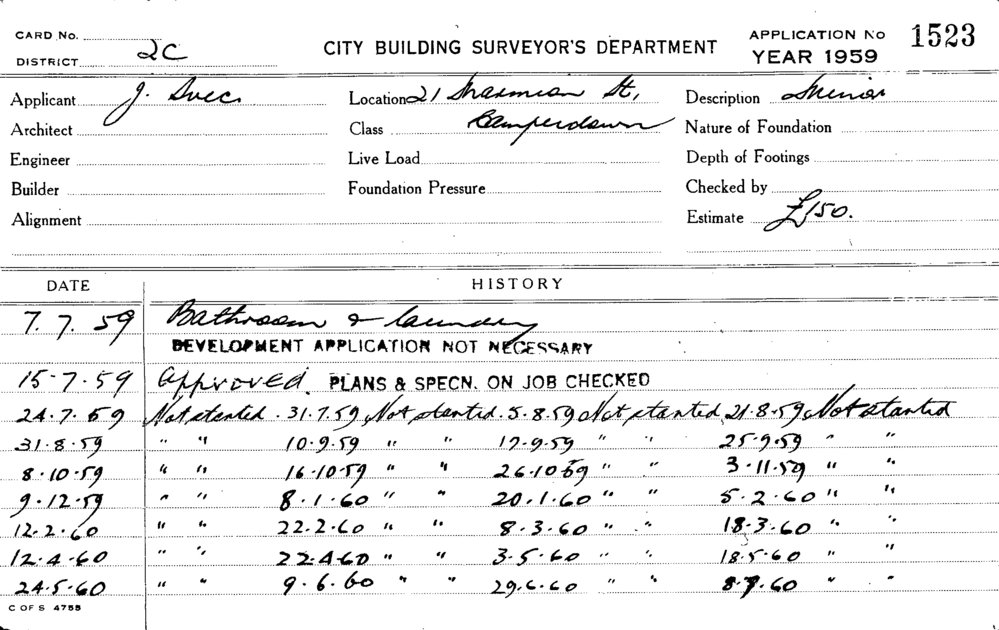 CARD No.
DISTRICT 2C
CITY BUILDING SURVEYOR'S DEPARTMENT
APPLICATION No 1523
YEAR 1959
Applicant J. Svec.
Location 21 St,
Description
Architect
Class Camperdown
Nature of Foundation
Engineer
Live Load
Depth of Footings
Builder
Foundation Pressure
Checked by
Alignment
Estimate £150.
DATE HISTORY
7. 7. 59 Bathroom & laundry
DEVELOPMENT APPLICATION NOT NECESSARY
15-7-59 Approved. PLANS & SPECN. ON JOB CHECKED
24.7.59 Not started . 31.7.59 Not started . 5.8.59 Not started 21.8.59 Not started
31.8.59 " " 10.9.59 " " 17.9.59 " " 25.9.59 " "
8.10.59 " " 16.10.59 " " 26.10.59 " " 3.11.59 " "
9.12.59 " " 8.1.60 " " 20.1.60 " " 5.2.60 " "
12.2.60 " " 22.2.60 " " 8.3.60 " " 18.3.60 " "
12.4.60 " " 22.4.60 " " 3.5.60 " " 18.5.60 " "
24.5.60 " " 9.6.60 " " 29.6.60 " " 8.7.60 " "
C OF S 4755